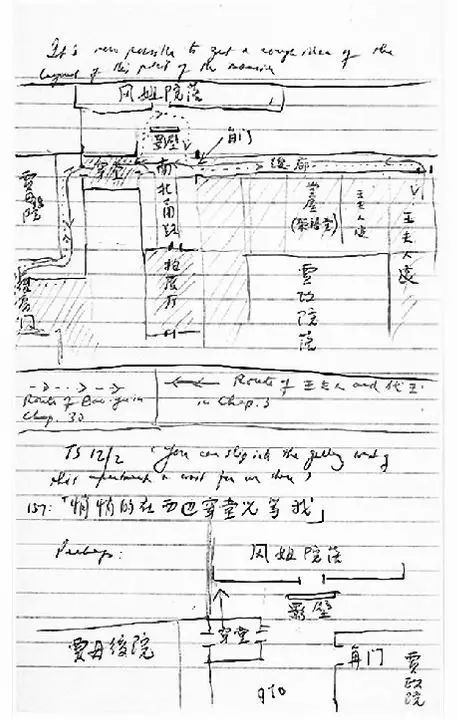 It's now possible to get a rough idea of the
layout of this part of the mansion
凤姐院落
影壁
角门
穿堂
南北甬路
後廊
賈母院
堂屋
(荣禧堂)
王夫人處
王夫人處
抱厦厅
賈政院落
Route of Bao-yu in
Chap. 30
Route of 王夫人 and 代玉
in Chap. 3
TS 12/2 'You can slip into the gallery west of
this apartment & wait for me there'
137: 「悄悄的在西边穿堂儿等我」
Perhaps:
凤姐院落
影壁
穿堂
賈母後院
角门
賈政院